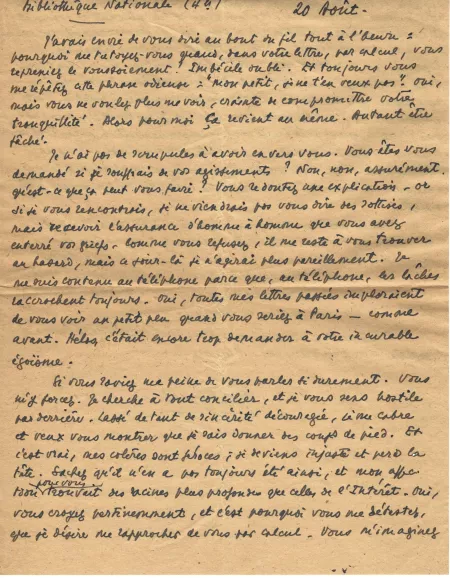 Bibliothèque Nationale (49)
20 Août.
J'avais envie de vous dire au bout du fil tout à l'heure :
pourquoi me tutoyez-vous quand, dans votre lettre, par calcul, vous
repreniez le vousoiement ? Imbécile oubli. Et toujours vous
me répétez cette phrase odieuse : "mon petit, je ne t'en veux pas". Oui,
mais vous ne voulez plus me voir, crainte de compromettre votre
tranquillité. Alors pour moi ça revient au même. Autant être
fâché.
Je n'ai pas de scrupules à avoir envers vous. Vous êtes vous
demandé si je souffrais de vos agissements ? Non, non, assurément.
qu'est-ce que ça peut vous faire ? Vous redoutez une explication - or
si je vous rencontrais, je ne viendrais pas vous dire des sottises,
mais recevoir l'assurance d'homme à homme que vous avez
enterré vos griefs. Comme vous refusez, il me reste à vous trouver
au hasard, mais ce jour-là je n'agirai plus pareillement. Je
me suis contenu au téléphone parce que, au téléphone, les lâches
raccrochent toujours. Oui, toutes mes lettres passées imploraient
de vous voir un petit peu quand vous seriez à Paris - comme
avant. Hélas, c'était encore trop demander à votre incurable
égoïsme.
Si vous saviez ma peine de vous parler si durement. Vous
m'y forcez. Je cherche à tout concilier, et je vous sens hostile
par derrière. Lassé de tant de sincérité découragée, je me cabre
et veux vous montrer que je sais donner des coups de pied. Et
c'est vrai, mes colères sont féroces ; je deviens injuste et perd la
tête. Sachez qu'il n'en a pas toujours été ainsi, et mon affec-
tion pour vous trouvait des racines plus profondes que celles de l'Intérêt. Oui,
vous croyez pertinemment, et c'est pourquoi vous me détestez,
que je désire me rapprocher de vous par calcul. Vous m'imaginez